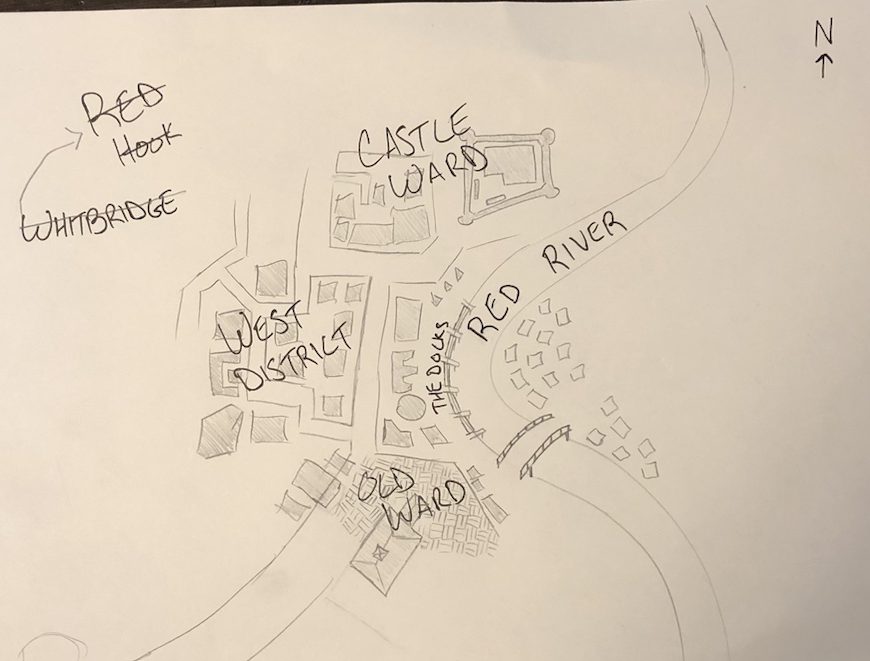 N
RED
HOOK
WHITBRIDGE
CASTLE
WARD
RED RIVER
WEST
DISTRICT
THE DOCKS
OLD
WARD